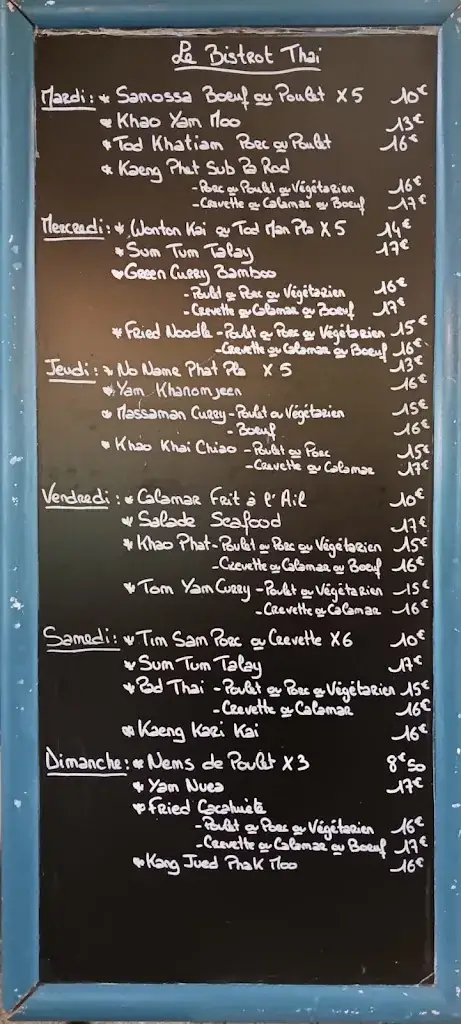 Le Bistrot Thai
Mardi : * Samossa Boeuf ou Poulet X5 10€
* Khao Yam Moo 13€
* Tod Khatiam Porc ou Poulet 16€
* Kaeng Phet Sub Pa Rod
- Porc ou Poulet ou Végétarien 16€
- Crevette ou Calamar ou Boeuf 17€
Mercredi : * Wonton Kai ou Tod Man Pla X5 14€
* Sum Tum Talay 17€
* Green Curry Bamboo
- Poulet ou Porc ou Végétarien 16€
- Crevette ou Calamar ou Boeuf 17€
* Fried Noodle - Poulet ou Porc ou Végétarien 15€
- Crevette ou Calamar ou Boeuf 16€
Jeudi : * No Name Phat Pla X5 13€
* Yam Khanomjeen 16€
* Massaman Curry - Poulet ou Végétarien 15€
- Boeuf 16€
* Khao Khai Chiao - Poulet ou Porc 15€
- Crevette ou Calamar 17€
Vendredi : * Calamar Frit à l'Ail 10€
* Salade Seafood 17€
* Khao Phat - Poulet ou Porc ou Végétarien 15€
- Crevette ou Calamar ou Boeuf 16€
* Tom Yam Curry - Poulet ou Végétarien 15€
- Crevette ou Calamar 16€
Samedi : * Tim Sam Porc ou Crevette X6 10€
* Sum Tum Talay 17€
* Pad Thai - Poulet ou Porc ou Végétarien 15€
- Crevette ou Calamar 16€
* Kaeng Kari Kai 16€
Dimanche : * Nems de Poulet X3 8€50
* Yam Nuea 17€
* Fried Cacahuète
- Poulet ou Porc ou Végétarien 16€
- Crevette ou Calamar ou Boeuf 17€
* Kang Jued Phak Moo 16€